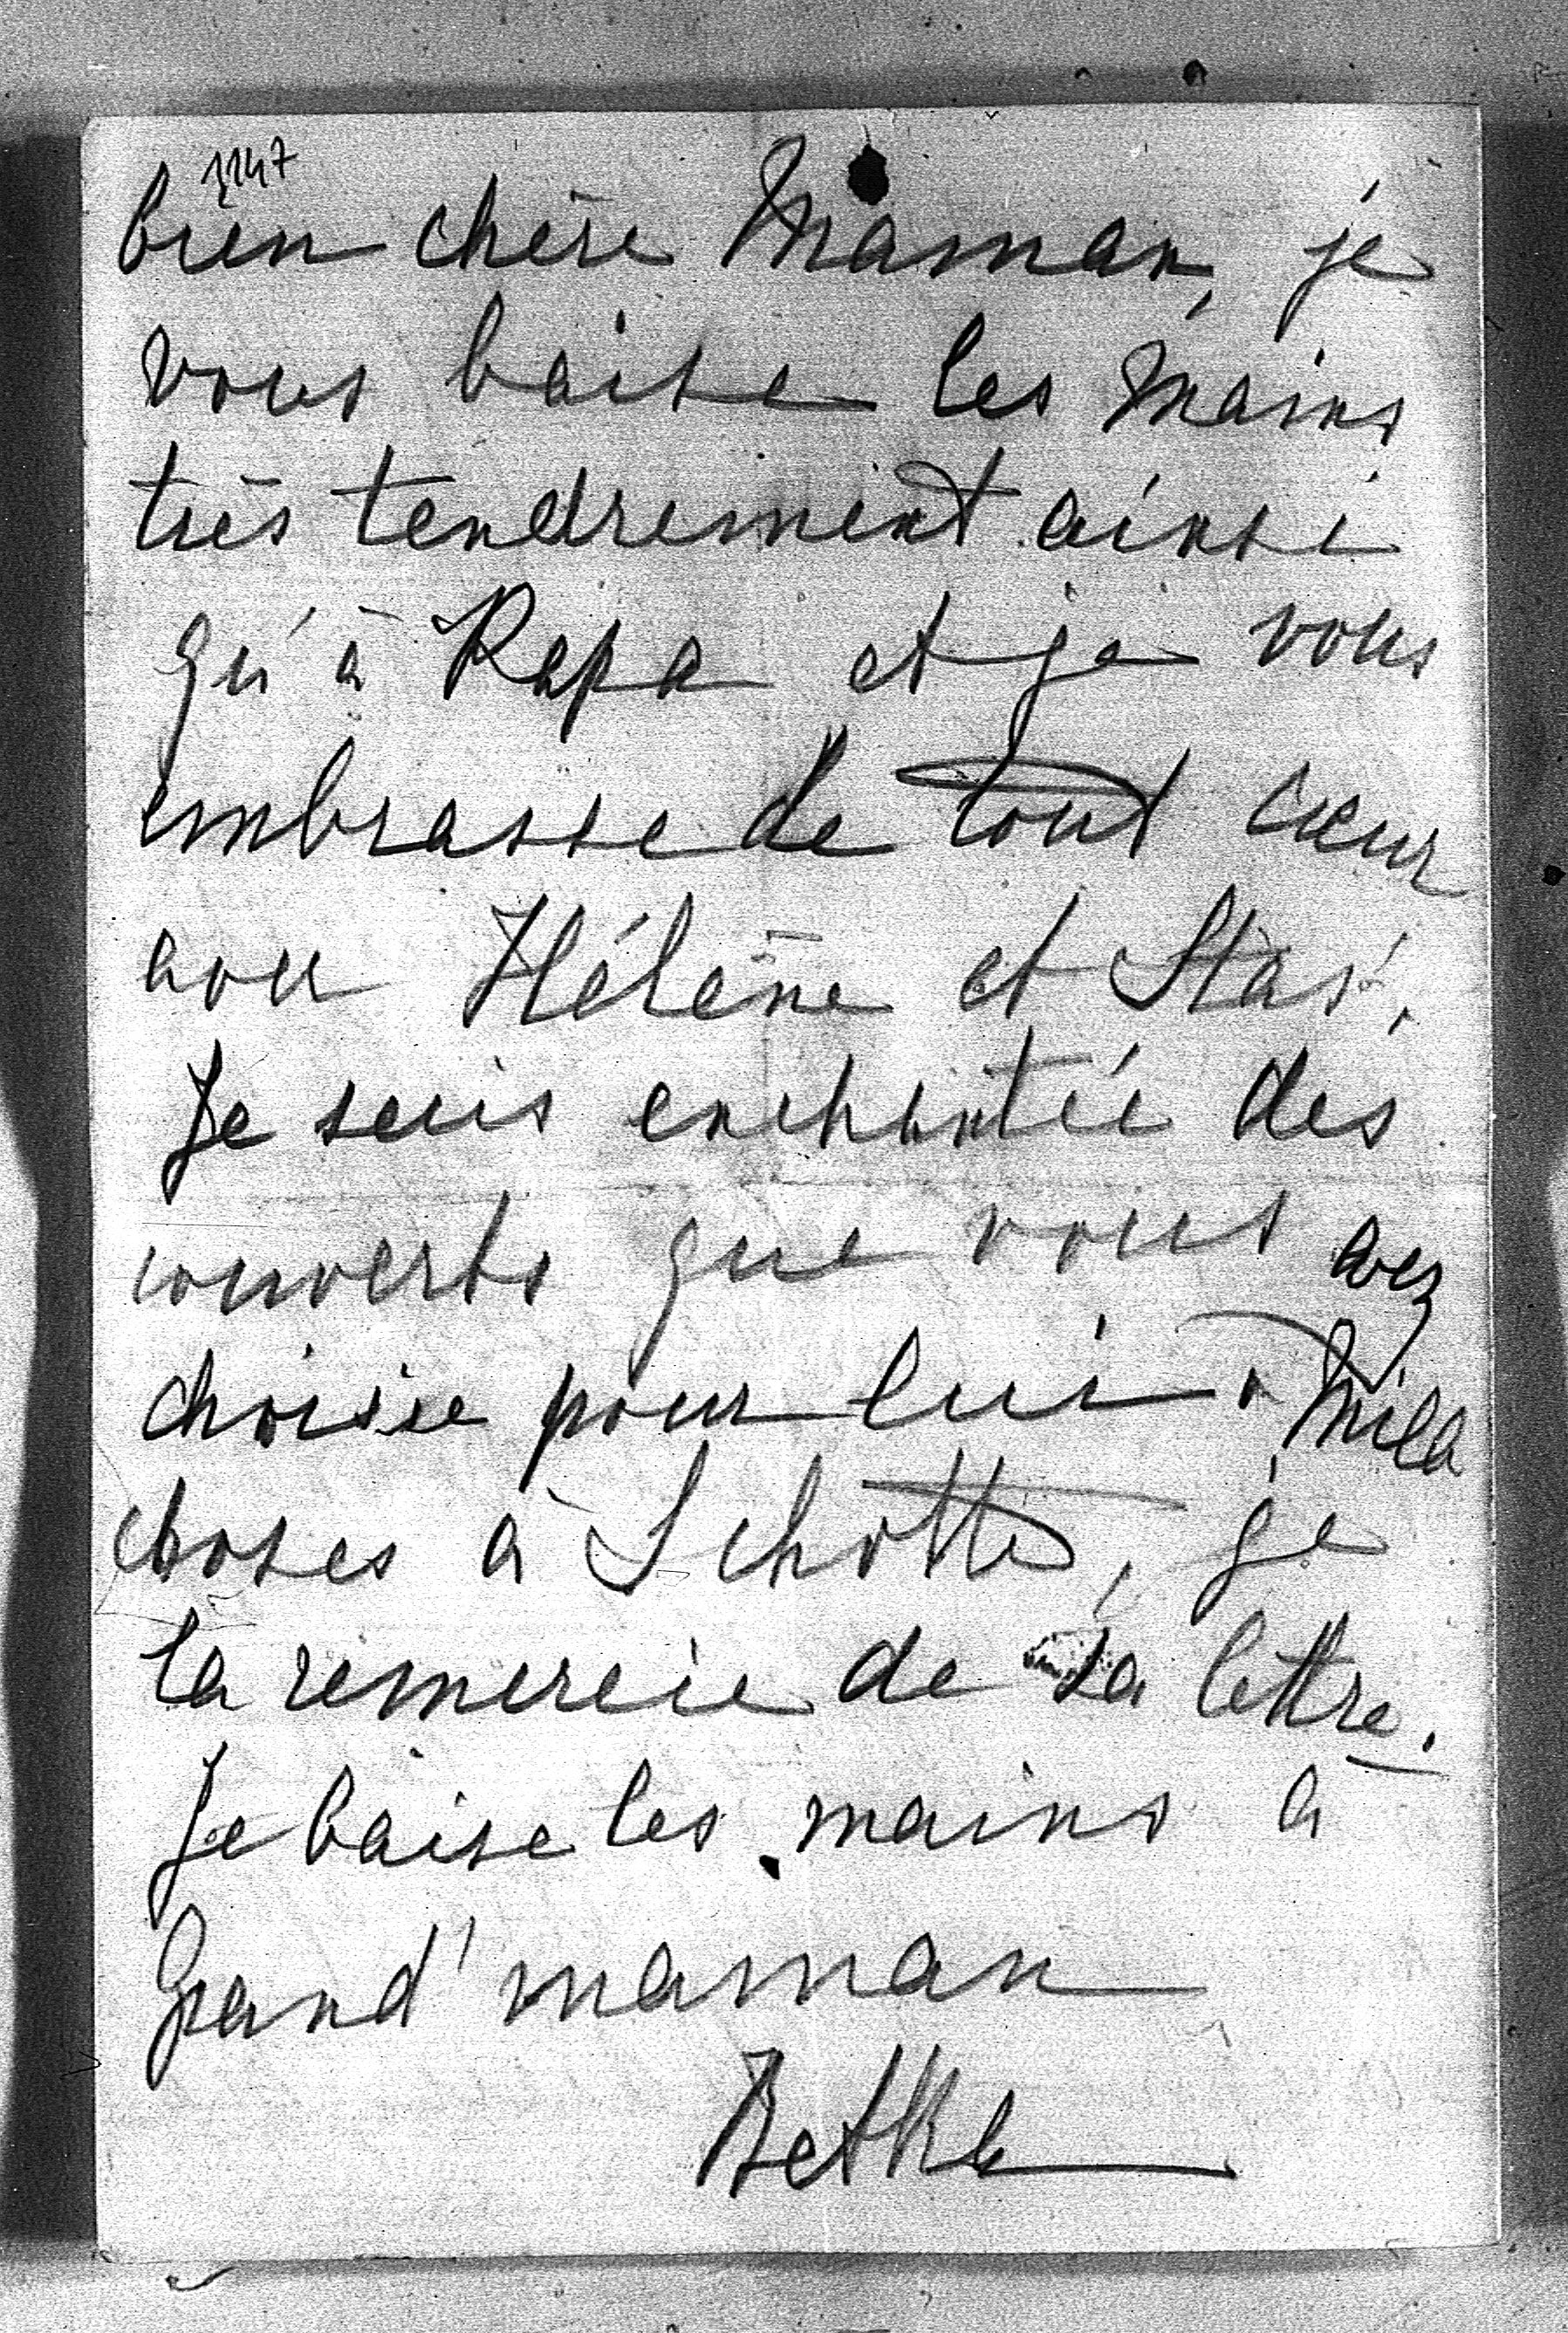 1147
bien chère Maman, je
vous baise les mains
très tendrement ainsi
qu'à Papa et je vous
embrasse de tout cœur
avec Hélène et Staś.
Je suis enchantée des
couverts que vous avez
choisie pour lui. Mille
choses à Schotte, je
la remercie de sa lettre.
Je baise les mains à
Grand'maman
Betka